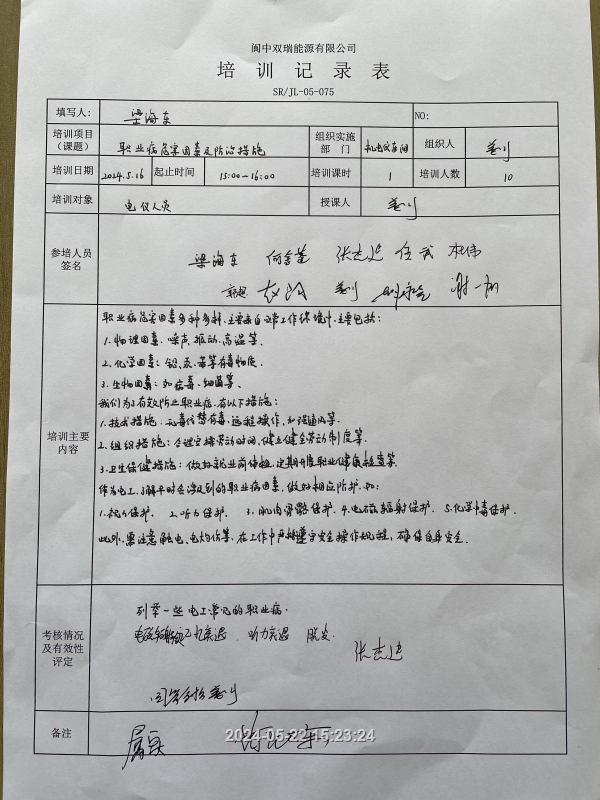 阆中双瑞能源有限公司
培训记录表
SR/JL-05-075
填写人： 梁海东 NO:
培训项目（课题） 职业病危害因素及防治措施 组织实施部门 机电仪车间 组织人
培训日期 2024.5.16 起止时间 15:00-16:00 培训课时 1 培训人数 10
培训对象 电仪人员 授课人
参培人员签名 梁海东 何金莲 张志延 伍武 杜伟
赵 谢
培训主要内容
职业病危害因素多种多样,主要来自日常工作环境中,主要包括:
1.物理因素: 噪声、振动、高温等.
2.化学因素: 铅、汞、苯等有毒物质.
3.生物因素: 如病毒、细菌等.
我们为了有效防止职业病,有以下措施:
1.技术措施: 无毒代替有毒,远程操作,加强通风等.
2.组织措施: 合理安排劳动时间,建立健全劳动制度等.
3.卫生保健措施: 做好就业前体检,定期开展职业健康检查等.
作为电工,了解平时会涉及到的职业病因素,做好相应防护.如:
1.视力保护. 2.听力保护. 3.肌肉骨骼保护. 4.电磁辐射保护. 5.化学中毒保护.
此外,需注意触电、电灼伤等,在工作中严格遵守安全操作规程,确保自身安全.
考核情况及有效性评定
列举一些电工常见的职业病.
记忆衰退, 听力衰退 脱发.
张志延
回答
备注 属实
2024-05-22 15:23:24